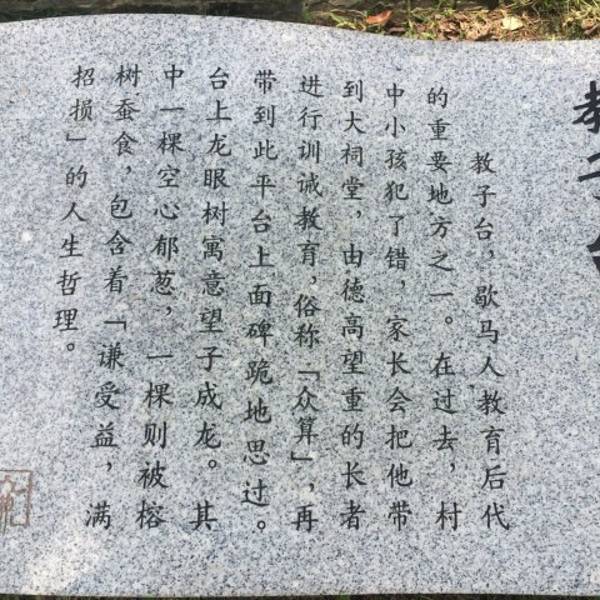 教子台
教子台，歇马人教育后代
的重要地方之一。在过去，村
中小孩犯了错，家长会把他带
到大祠堂，由德高望重的长者
进行训诫教育，俗称「众算」，再
带到此平台上面碑跪地思过。
台上龙眼树寓意望子成龙。其
中一棵空心郁葱，一棵则被榕
树蚕食，包含着「谦受益，满
招损」的人生哲理。